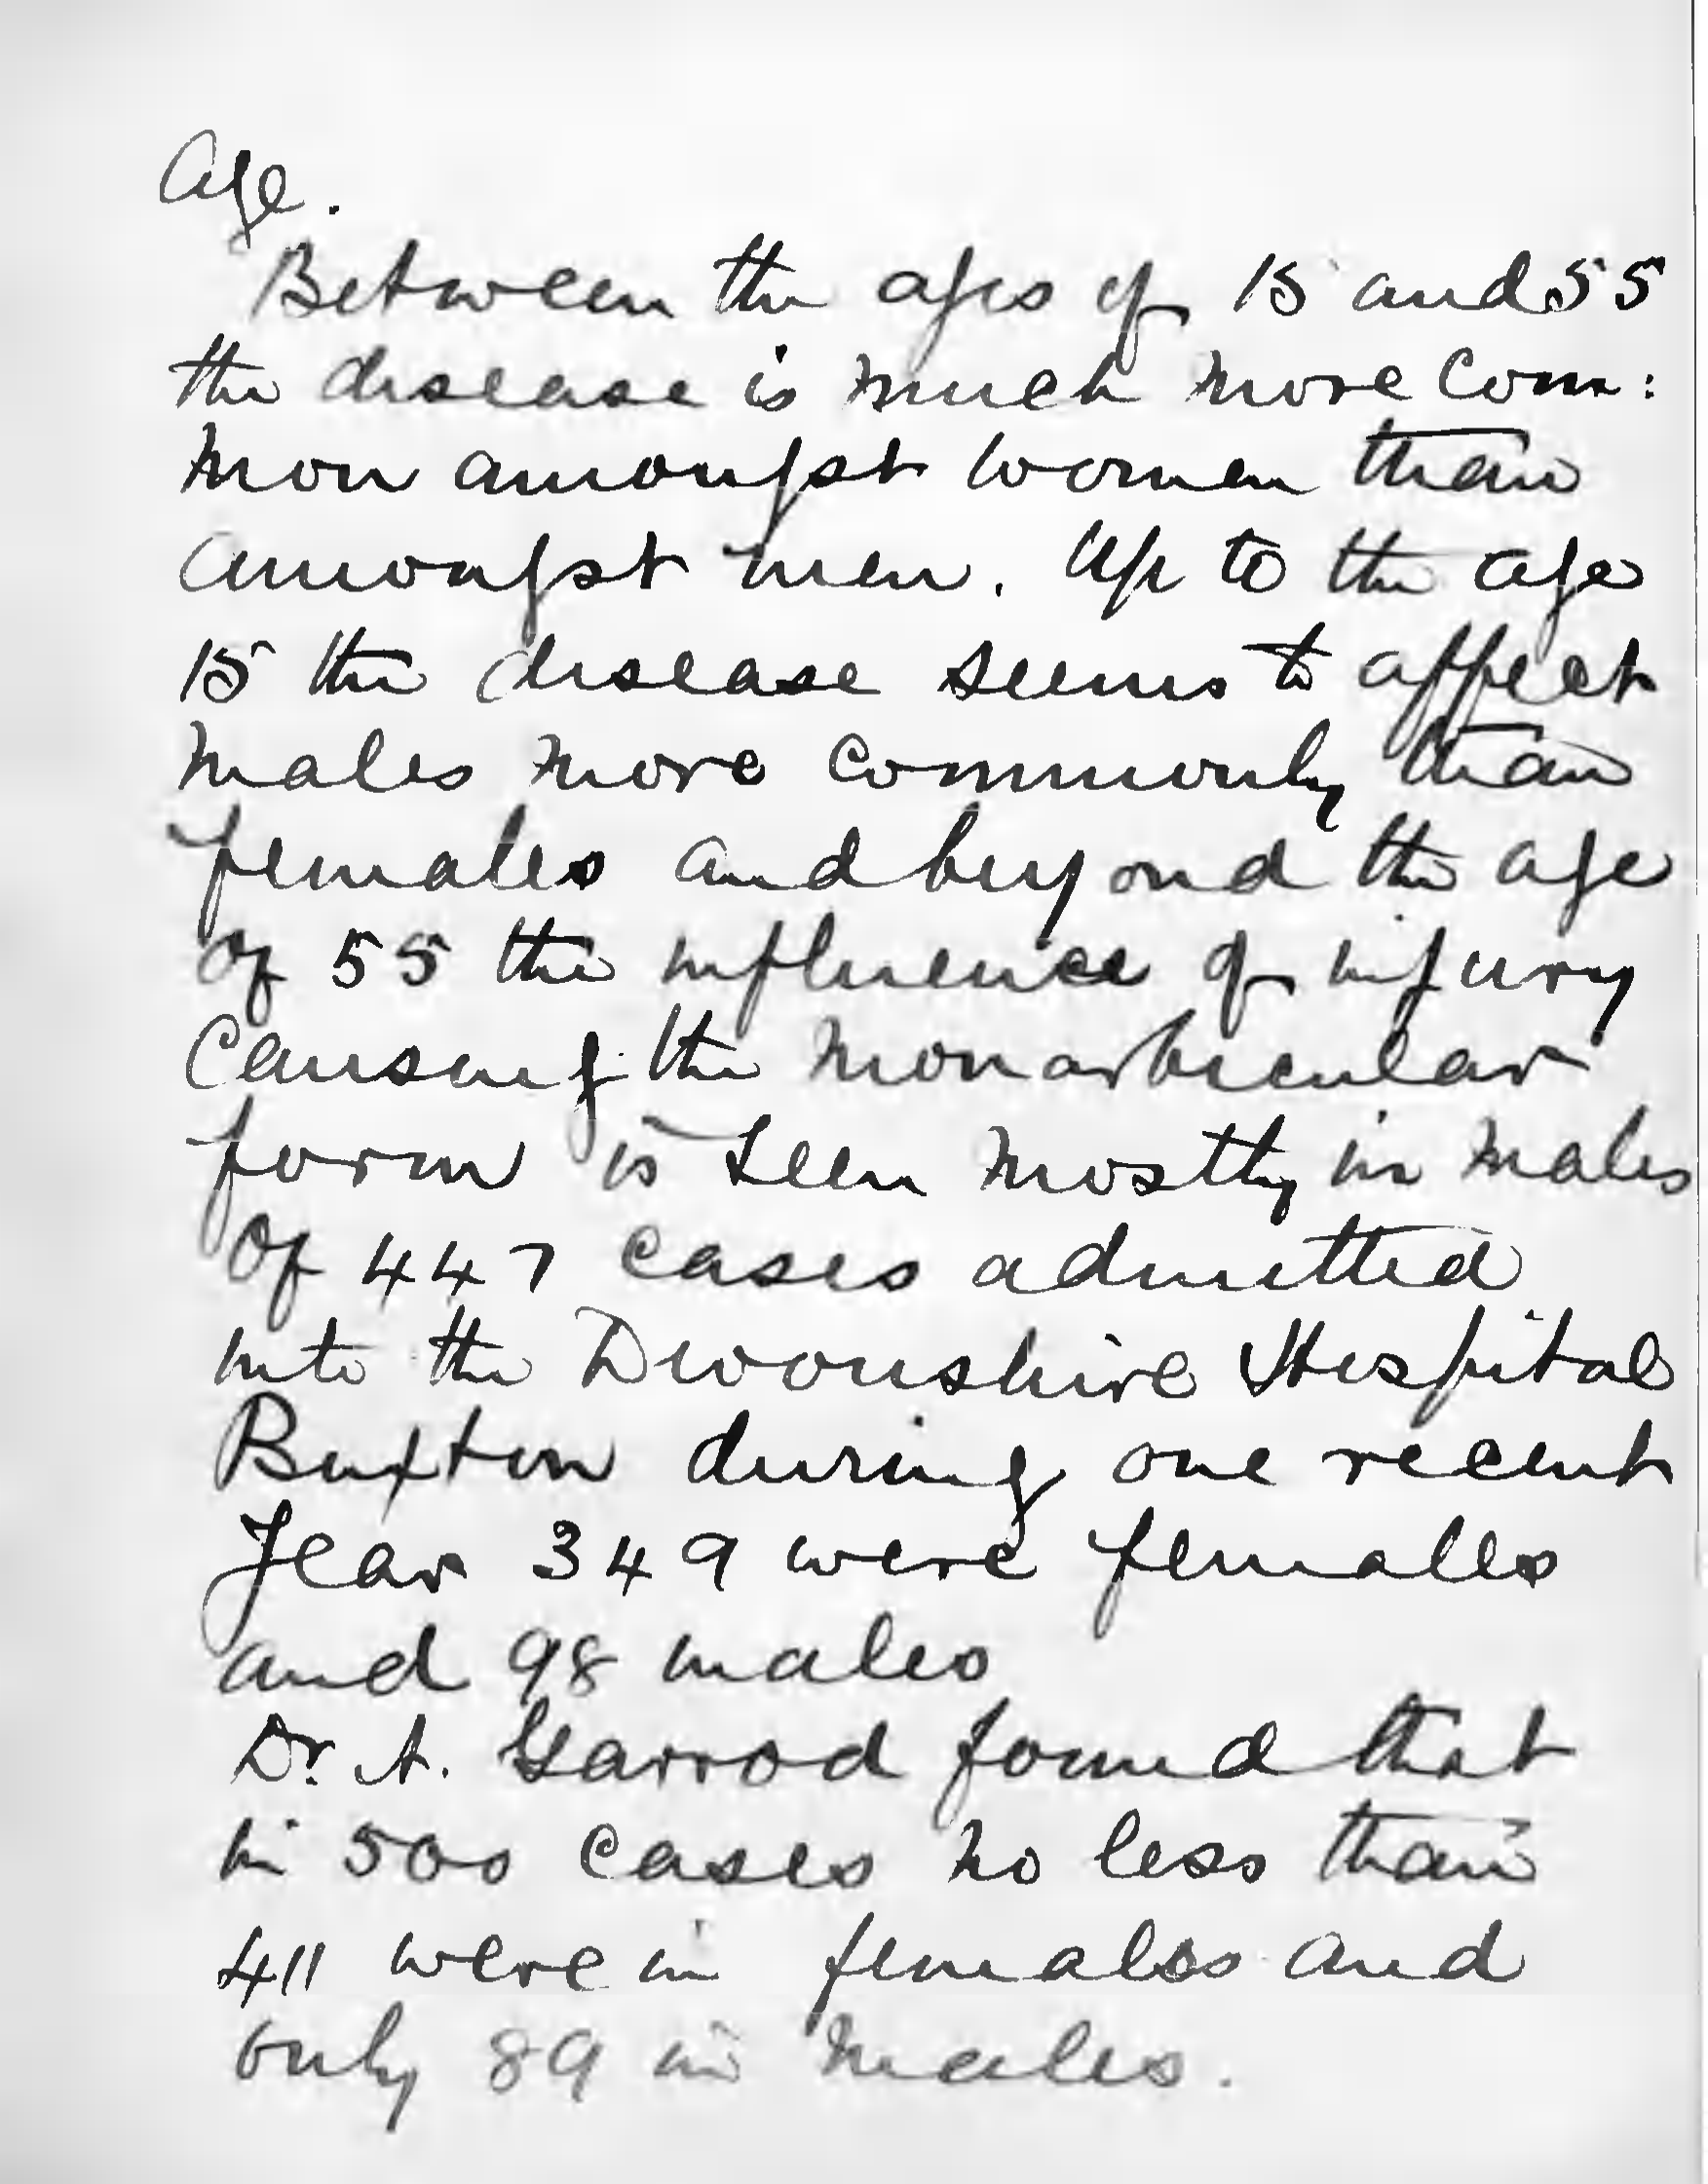 Age.
Between the ages of 15 and 55
the disease is much more com:
mon amongst women than
amongst men. Up to the age
15 the disease seems to affect
males more commonly than
females and beyond the age
of 55 the influence of injury
causing the monarticular
form is seen mostly in males
Of 447 cases admitted
into the Devonshire Hospital
Buxton during one recent
Year 349 were females
and 98 males
Dr. A. Garrod found that
in 500 cases no less than
411 were in females and
only 89 in males.